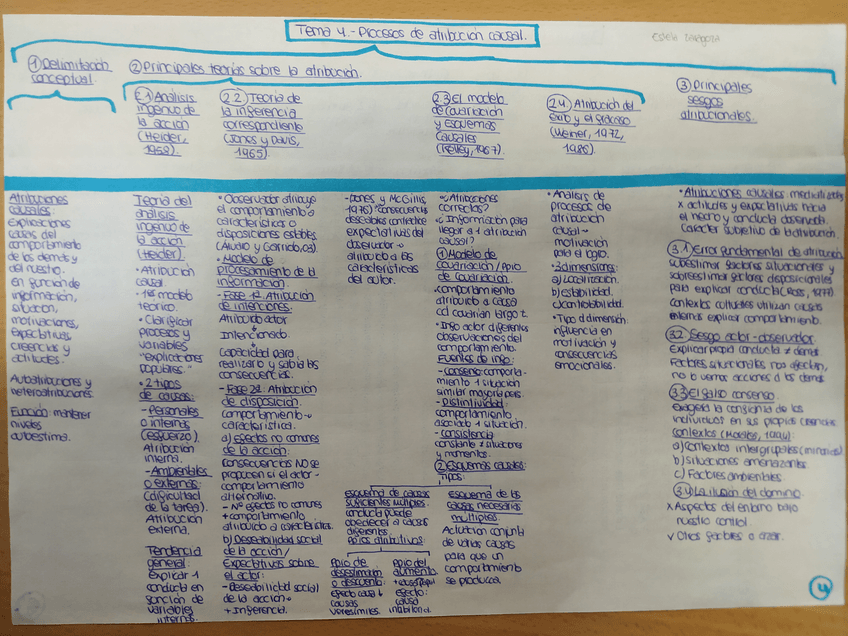 Tema 4.- Procesos de atribución causal.
Estela Zaragoza
① Delimitación
conceptual.
② Principales teorías sobre la atribución.
2.1 Análisis
ingenuo de
la acción
(Heider,
1958).
2.2) Teoría de
la inferencia
correspondiente
(Jones y Davis,
1965).
2.3 El modelo
de covariación
y Esquemas
causales
(Kelley, 1967).
2.4) Atribución del
éxito y el fracaso
(Weiner, 1972,
1986).
③ Principales
sesgos
atribucionales.
Atribuciones
causales:
Explicaciones
causas del
comportamiento
de los demás y
del nuestro.
en función de
información,
situación,
motivaciones,
expectativas,
creencias y
actitudes.
Autoatribuciones y
heteroatribuciones
Función: mantener
niveles
autoestima.
Teoría del
análisis
ingenuo de
la acción
(Heider):
• Atribución
causal
- 1er modelo
teórico.
• Clarificar
procesos y
variables
"explicaciones
populares."
• 2 tipos
de causas:
- Personales
o internas
(esfuerzo).
Atribución
interna.
- Ambientales
o externas:
(dificultad
de la tarea).
Atribución
externa.
Tendencia
general:
Explicar 1
conducta en
función de
variables
internas.
• Observador atribuye
el comportamiento a
características o
disposiciones estables
• Modelo de
procesamiento de la
información.
- Fase 1ª: Atribución
de intenciones:
Atribuido actor
↓
Intencionado.
Capacidad para
realizarlo y sabía las
consecuencias.
- Fase 2ª: Atribución
de disposición.
comportamiento →
característica.
a) efectos no comunes
de la acción:
consecuencias NO se
producen si el actor -
comportamiento
alternativo.
- Nº efectos no comunes
+ comportamiento
atribuido a característica.
b) Deseabilidad social
de la acción /
Expectativas sobre
el actor:
- Deseabilidad social
de la acción →
+ Inferencia.
- Jones y McGillis,
1976) consecuencias
deseables contrarias
expectativas del
observador →
atribuido a las
características
del actor.
¿Atribuciones
correctas?
¿Información para
llegar a 1 atribución
causal?
① Modelo de
covariación / ppio
de covariación.
• comportamiento
atribuido a causa
cd covarían largo t.
• Info actor diferentes
observaciones del
comportamiento.
Fuentes de info:
- consenso: comporta-
miento 1 situación
similar mayoría pers.
- Distintividad:
comportamiento
asociado 1 situación.
- consistencia
constante ≠ situaciones
y momentos.
② Esquemas causales:
Tipos:
esquema de causas
suficientes múltiples:
conducta puede
obedecer a causas
diferentes.
Ppios atributivos:
Ppio de
desestimación
o descuento:
efecto causa ↓
causas
verosímiles.
Ppio del
aumento
efecto:
causa
inhibitoria.
esquema de las
causas necesarias
múltiples.
Actuación conjunta
de varias causas
para que un
comportamiento
se produzca.
• Análisis de
procesos de
atribución
causal →
motivación
para el logro.
• 3 dimensiones:
a) Localización.
b) Estabilidad.
c) Controlabilidad.
• Tipo d dimensión
influencia en
motivación y
consecuencias
emocionales.
• Atribuciones causales: mediatizadas
x actitudes y expectativas hacia
el hecho y conducta observada.
Carácter subjetivo de la atribución.
3.1) Error fundamental de atribución
subestimar factores situacionales y
sobreestimar factores disposicionales
para explicar conducta (Ross, 1977)
Contextos culturales utilizan causas
externas explicar comportamiento.
3.2 Sesgo actor-observador
Explicar propia conducta ≠ demás.
Factores situacionales nos afectan,
no b vemos acciones d los demás
3.3 El falso consenso
Exagera la confianza de los
individuos en sus propias creencias
Contextos (Morales, 1994):
a) Contextos intergrupales (minorías)
b) Situaciones amenazantes
c) Factores ambientales
3.4) La ilusión del dominio
x Aspectos del entorno bajo
nuestro control.
✓ Otros factores o azar.
4